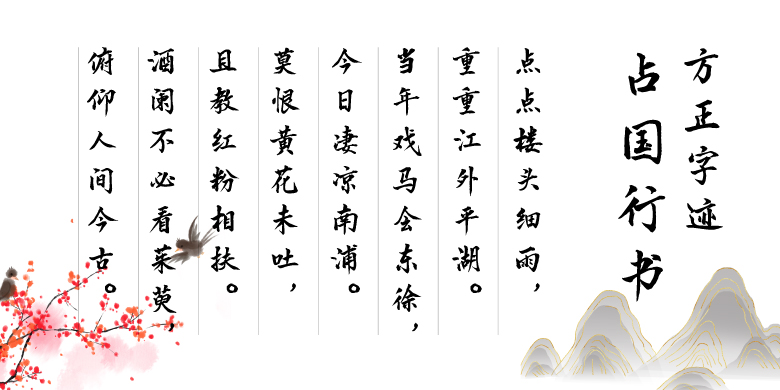 方正字迹
占国行书
点点楼头细雨，
重重江外平湖。
当年戏马会东徐，
今日凄凉南浦。
莫恨黄花未吐，
且教红粉相扶。
酒阑不必看茱萸，
俯仰人间今古。